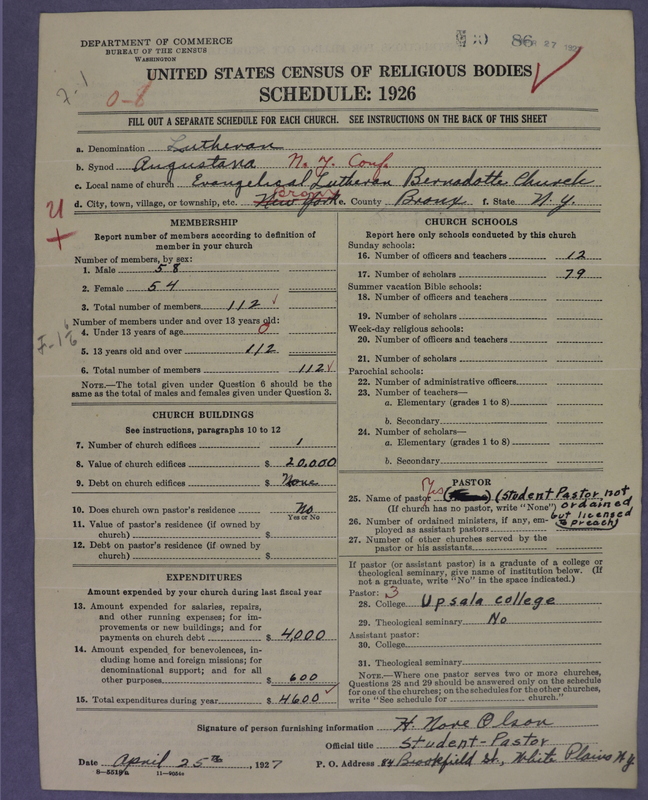 DEPARTMENT OF COMMERCE
BUREAU OF THE CENSUS
WASHINGTON
86
UNITED STATES CENSUS OF RELIGIOUS BODIES
SCHEDULE: 1926
7-1
0-8
FILL OUT A SEPARATE SCHEDULE FOR EACH CHURCH. SEE INSTRUCTIONS ON THE BACK OF THIS SHEET
a. Denomination Lutheran
b. Synod Augustana N. Y. Conf.
c. Local name of church Evangelical Lutheran Bernadotte Church
Bronx
d. City, town, village, or township, etc. New York e. County Bronx f. State N. Y.
MEMBERSHIP
Report number of members according to definition of
member in your church
Number of members, by sex:
1. Male 58
2. Female 54
3. Total number of members 112
Number of members under and over 13 years old:
4. Under 13 years of age 0
5. 13 years old and over 112
6. Total number of members 112
NOTE.—The total given under Question 6 should be
the same as the total of males and females given under Question 3.
CHURCH BUILDINGS
See instructions, paragraphs 10 to 12
7. Number of church edifices 1
8. Value of church edifices $ 20,000
9. Debt on church edifices $ None
10. Does church own pastor's residence? No
Yes or No
11. Value of pastor's residence (if owned by
church) $
12. Debt on pastor's residence (if owned by
church) $
EXPENDITURES
Amount expended by your church during last fiscal year
13. Amount expended for salaries, repairs,
and other running expenses; for im-
provements or new buildings; and for
payments on church debt $ 4,000
14. Amount expended for benevolences, in-
cluding home and foreign missions; for
denominational support; and for all
other purposes $ 600
15. Total expenditures during year $ 4600
CHURCH SCHOOLS
Report here only schools conducted by this church
Sunday schools:
16. Number of officers and teachers 12
17. Number of scholars 79
Summer vacation Bible schools:
18. Number of officers and teachers
19. Number of scholars
Week-day religious schools:
20. Number of officers and teachers
21. Number of scholars
Parochial schools:
22. Number of administrative officers
23. Number of teachers—
a. Elementary (grades 1 to 8)
b. Secondary
24. Number of scholars—
a. Elementary (grades 1 to 8)
b. Secondary
PASTOR
25. Name of pastor Yes (Student Pastor, not
ordained
but licensed
to preach)
(If church has no pastor, write "None")
26. Number of ordained ministers, if any, em-
ployed as assistant pastors
27. Number of other churches served by the
pastor or his assistants
If pastor (or assistant pastor) is a graduate of a college or
theological seminary, give name of institution below. (If
not a graduate, write "No" in the space indicated.)
Pastor: 3
28. College Upsala college
29. Theological seminary No
Assistant pastor:
30. College
31. Theological seminary
NOTE.—Where one pastor serves two or more churches,
Questions 28 and 29 should be answered only on the schedule
for one of the churches; on the schedules for the other churches,
write "See schedule for church."
Signature of person furnishing information H. Nore Olson
Official title Student-Pastor
Date April 25th, 1927 P. O. Address 84 Brookfield St., White Plains N.Y.
11-90544